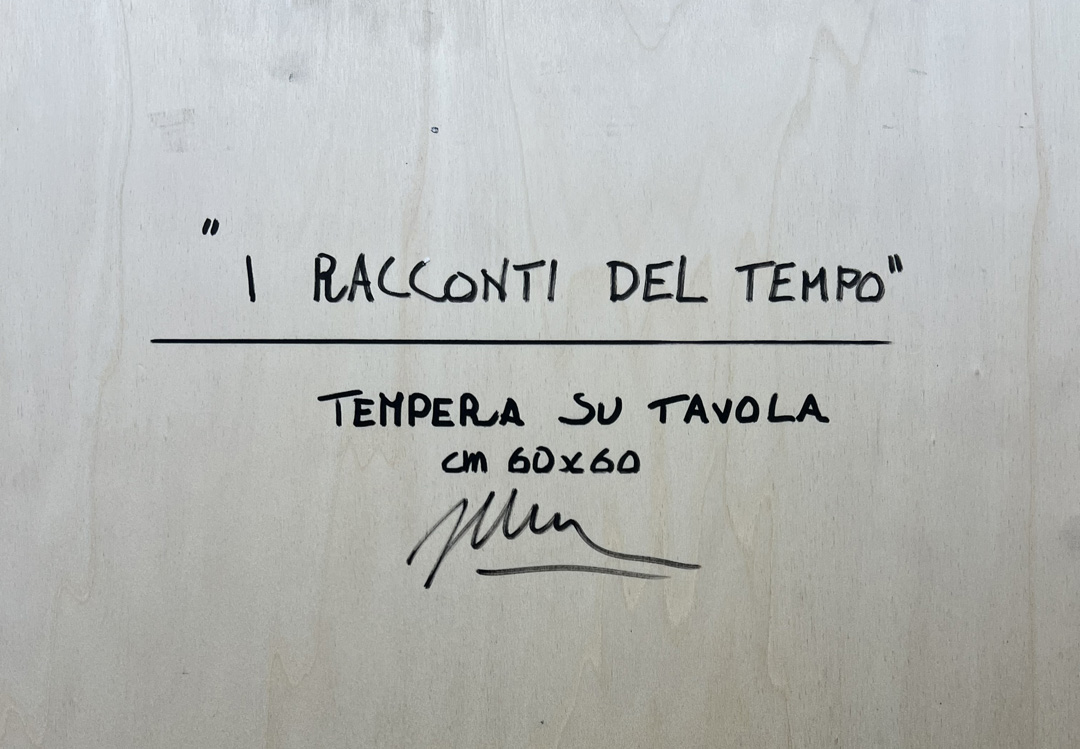 "I RACCONTI DEL TEMPO"
TEMPERA SU TAVOLA
cm 60x60